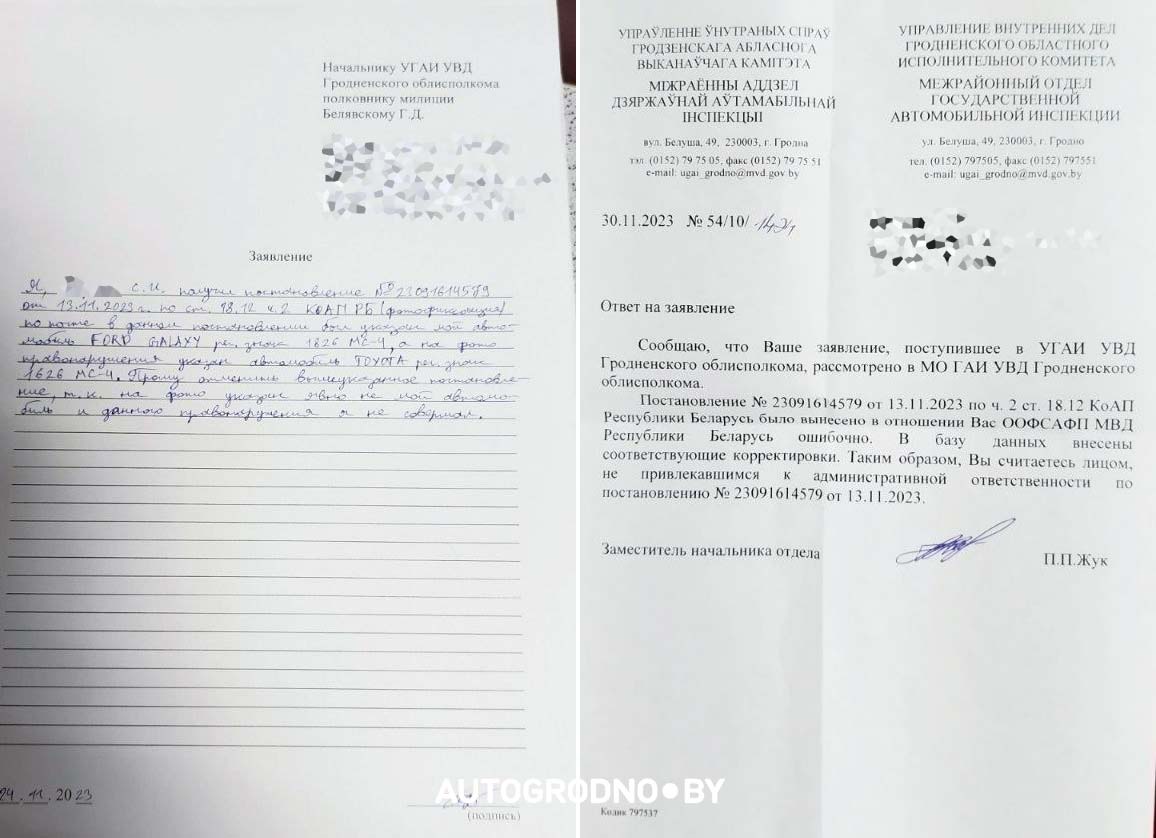 Начальнику УГАИ УВД
Гродненского облисполкома
полковнику милиции
Белявскому Г.Д.
Заявление
Я, С.И. получил постановление №23091614579
от 13.11.2023 г. по ст. 18.12 ч.2 КоАП РБ (фотофиксация)
по почте в данном постановлении был указан мой авто-
мобиль FORD GALAXY рег. знак 1826 МС-4, а на фото
правонарушения указан автомобиль TOYOTA рег. знак
1626 МС-4. Прошу отменить вышеуказанное постановле-
ние, т.к. на фото указан явно не мой автомо-
биль и данного правонарушения я не совершал.
24.11.2023
(подпись)
УПРАЎЛЕННЕ ЎНУТРАНЫХ СПРАЎ
ГРОДЗЕНСКАГА АБЛАСНОГА
ВЫКАНАЎЧАГА КАМІТЭТА
МІЖРАЁННЫ АДДЗЕЛ
ДЗЯРЖАЎНАЙ АЎТАМАБІЛЬНАЙ
ІНСПЕКЦЫІ
вул. Белуша, 49, 230003, г. Гродна
тэл. (0152) 79 75 05, факс (0152) 79 75 51
e-mail: ugai_grodno@mvd.gov.by
УПРАВЛЕНИЕ ВНУТРЕННИХ ДЕЛ
ГРОДНЕНСКОГО ОБЛАСТНОГО
ИСПОЛНИТЕЛЬНОГО КОМИТЕТА
МЕЖРАЙОННЫЙ ОТДЕЛ
ГОСУДАРСТВЕННОЙ
АВТОМОБИЛЬНОЙ ИНСПЕКЦИИ
ул. Белуша, 49, 230003, г. Гродно
тел. (0152) 797505, факс (0152) 797551
e-mail: ugai_grodno@mvd.gov.by
30.11.2023 № 54/10/
Ответ на заявление
Сообщаю, что Ваше заявление, поступившее в УГАИ УВД
Гродненского облисполкома, рассмотрено в МО ГАИ УВД Гродненского
облисполкома.
Постановление № 23091614579 от 13.11.2023 по ч. 2 ст. 18.12 КоАП
Республики Беларусь было вынесено в отношении Вас ООФСАФП МВД
Республики Беларусь ошибочно. В базу данных внесены
соответствующие корректировки. Таким образом, Вы считаетесь лицом,
не привлекавшимся к административной ответственности по
постановлению № 23091614579 от 13.11.2023.
Заместитель начальника отдела
П.П.Жук
Кодик 797537
AUTOGRODNO•BY